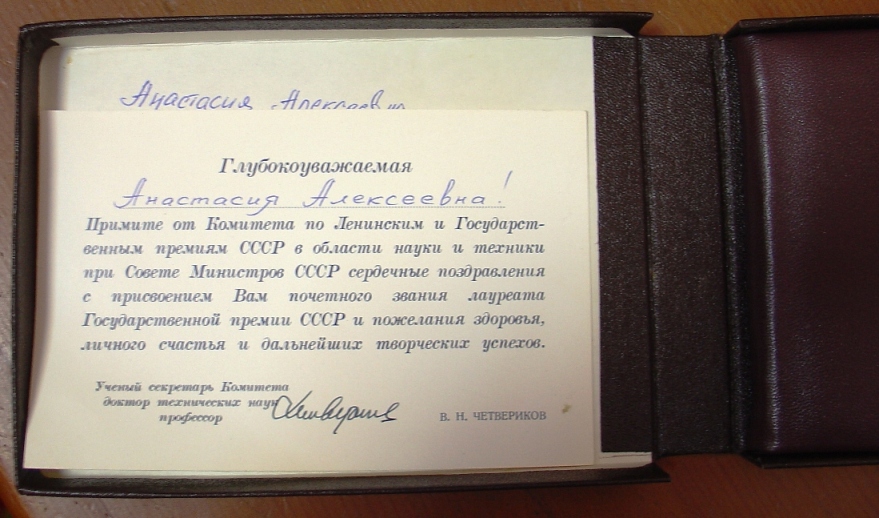 Анастасия Алексеевн
Глубокоуважаемая
Анастасия Алексеевна!
Примите от Комитета по Ленинским и Государст-
венным премиям СССР в области науки и техники
при Совете Министров СССР сердечные поздравления
с присвоением Вам почетного звания лауреата
Государственной премии СССР и пожелания здоровья,
личного счастья и дальнейших творческих успехов.
Ученый секретарь Комитета
доктор технических наук
профессор
В. Н. ЧЕТВЕРИКОВ